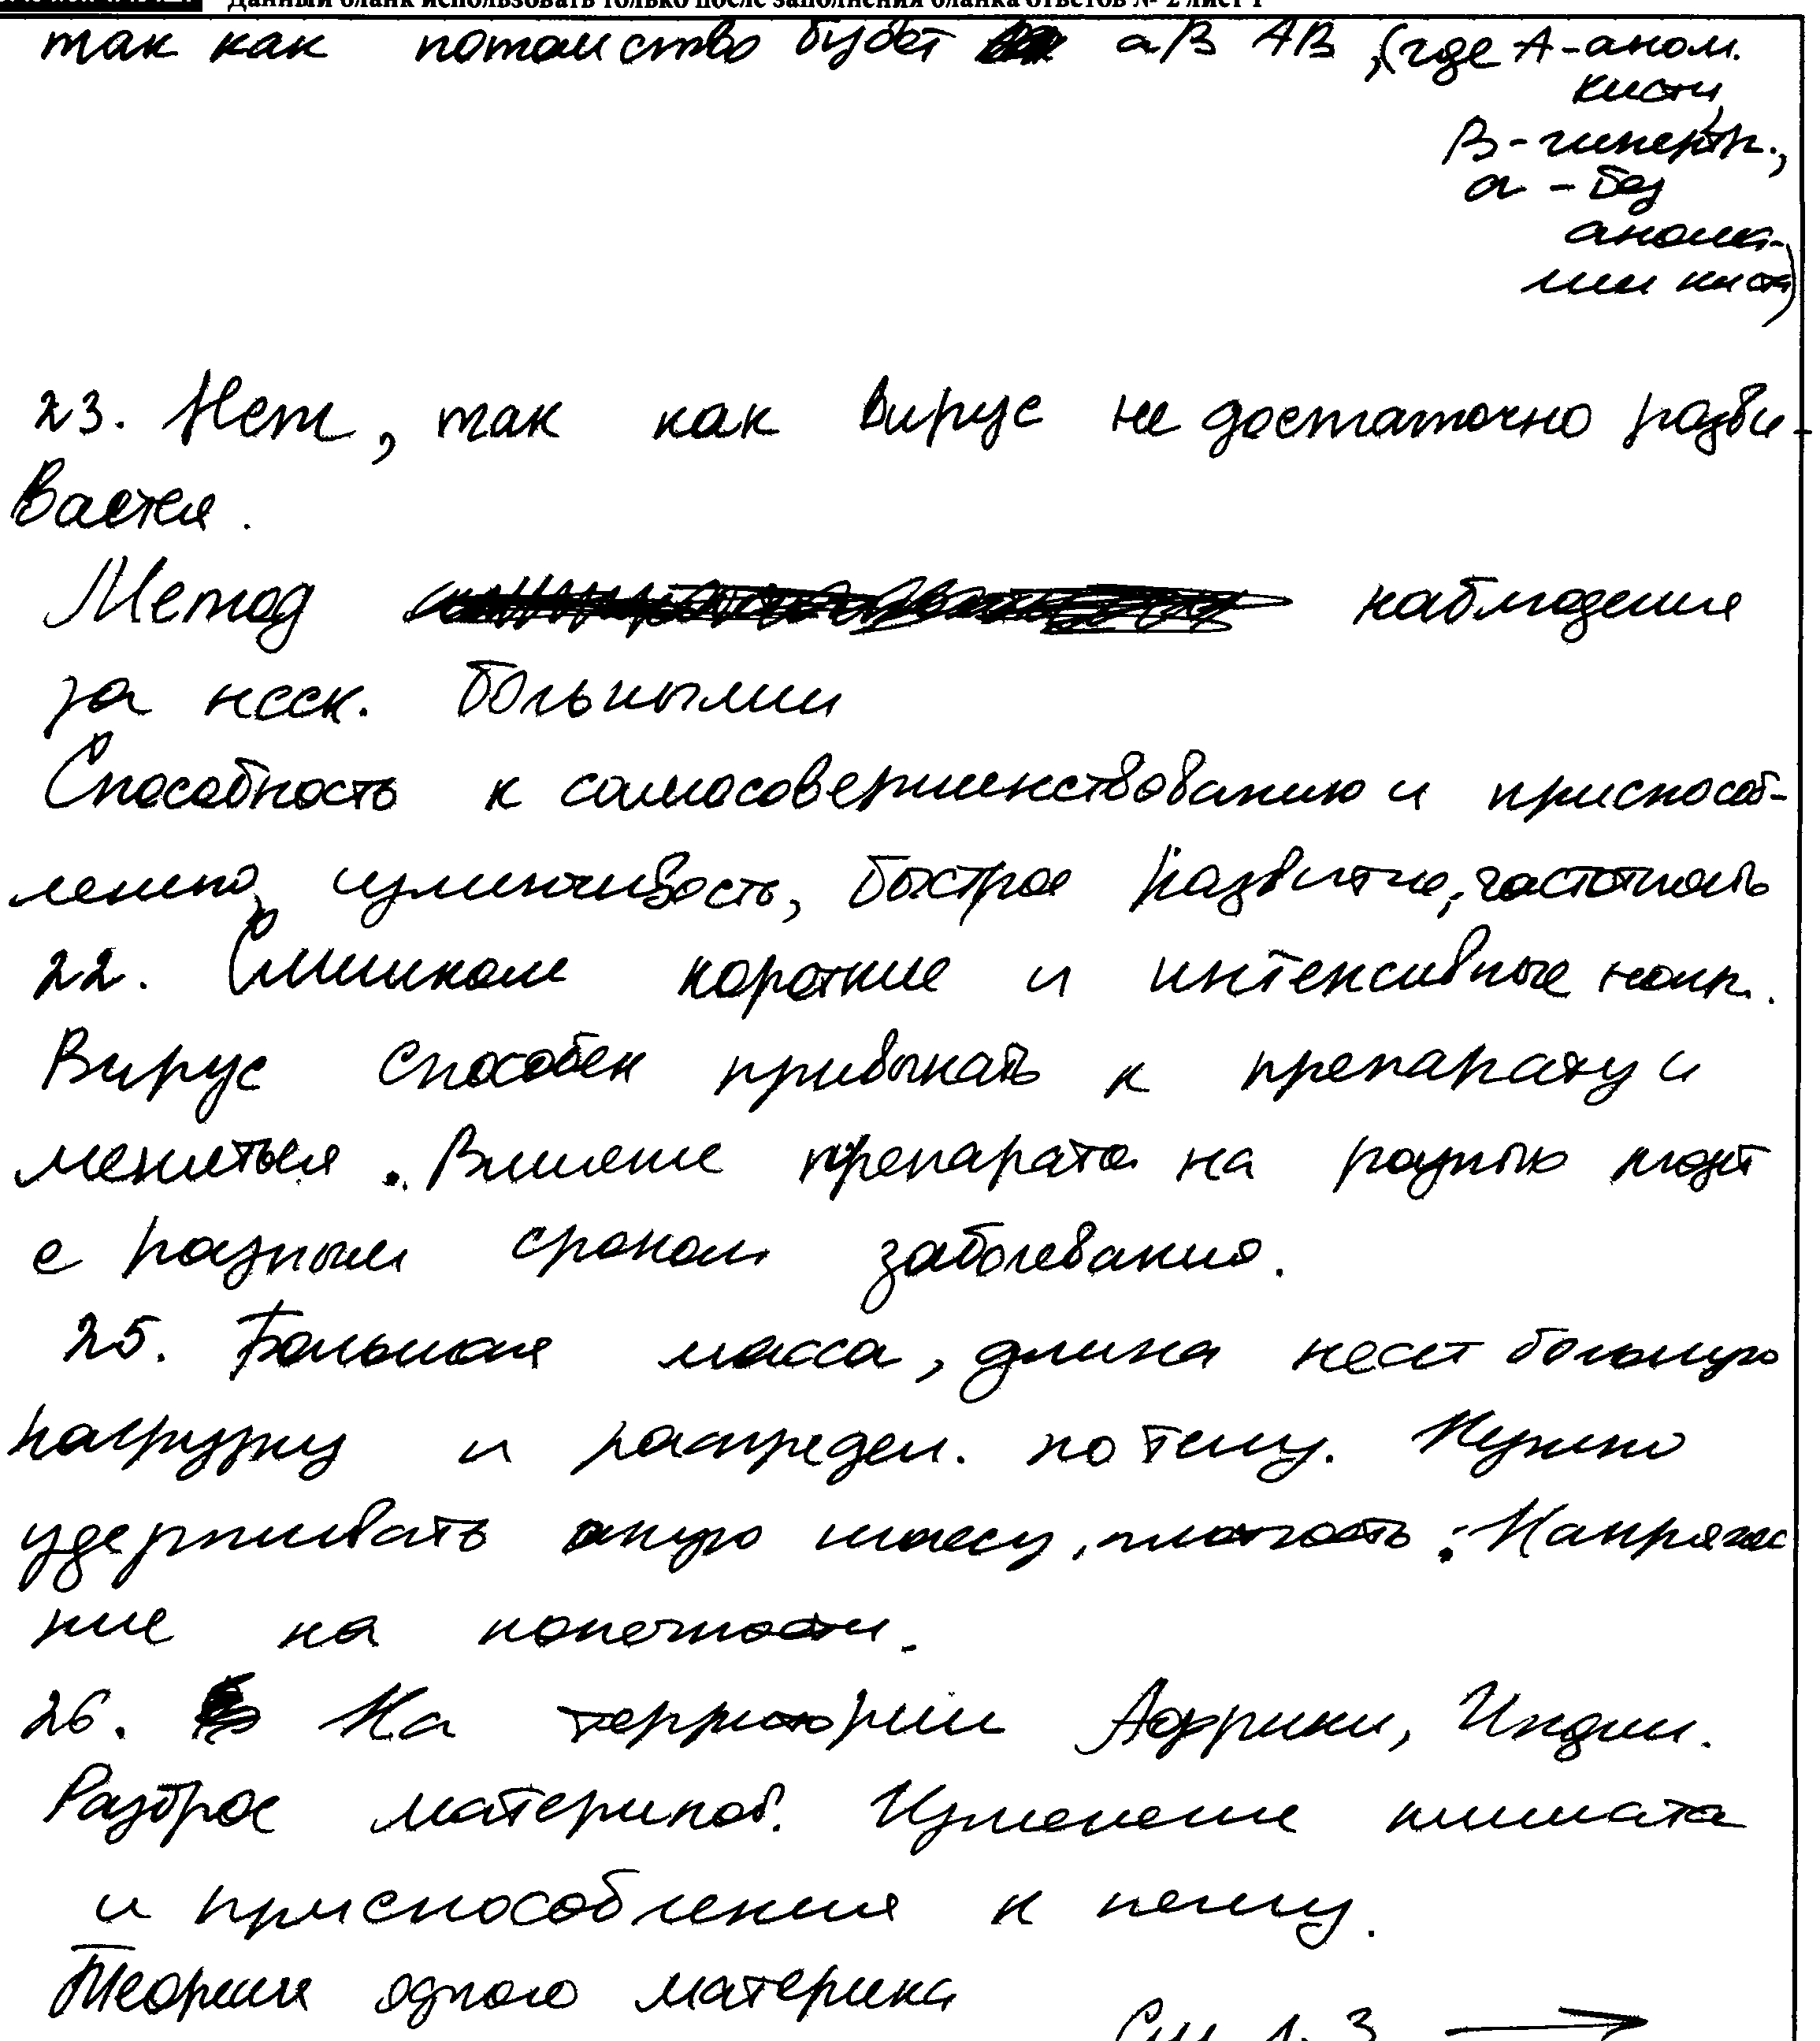 Данный бланк использовать только после заполнения бланка ответов № 2 лист 1
так как потомство будет аВ АВ, (где А-аном.
кисти,
В-гипертр.,
а - без
анома-
лии кисти)
23. Нет, так как вирус не достаточно разви-
вается.
Метод наблюдения
за неск. больными
Способность к самосовершенствованию и приспособ-
лению, изменчивость, быстрое развитие, частотность
22. Слишком короткие и интенсивные
Вирус способен привыкать к препарату и
меняться. Влияние препарата на разных
с разным сроком заболевания.
25. Большая масса, длина несёт большую
нагрузку и распредел. по телу. Нужно
удерживать массу, плотность. Напряже
ние на конечности.
26. На территории Аффрики, Индии.
Разброс материков. Изменение климата
и приспособления к нему.
Теория одного материка
См л. 3 →